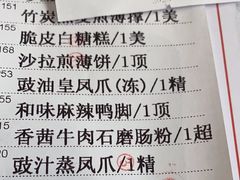 151
竹炭煎薄撑/1美
155
脆皮白糖糕/1美
153
沙拉煎薄饼/1顶
豉油皇凤爪(冻)/1精
和味麻辣鸭脚/1顶
香茜牛肉石磨肠粉/1超
20
豉汁蒸凤爪/1精